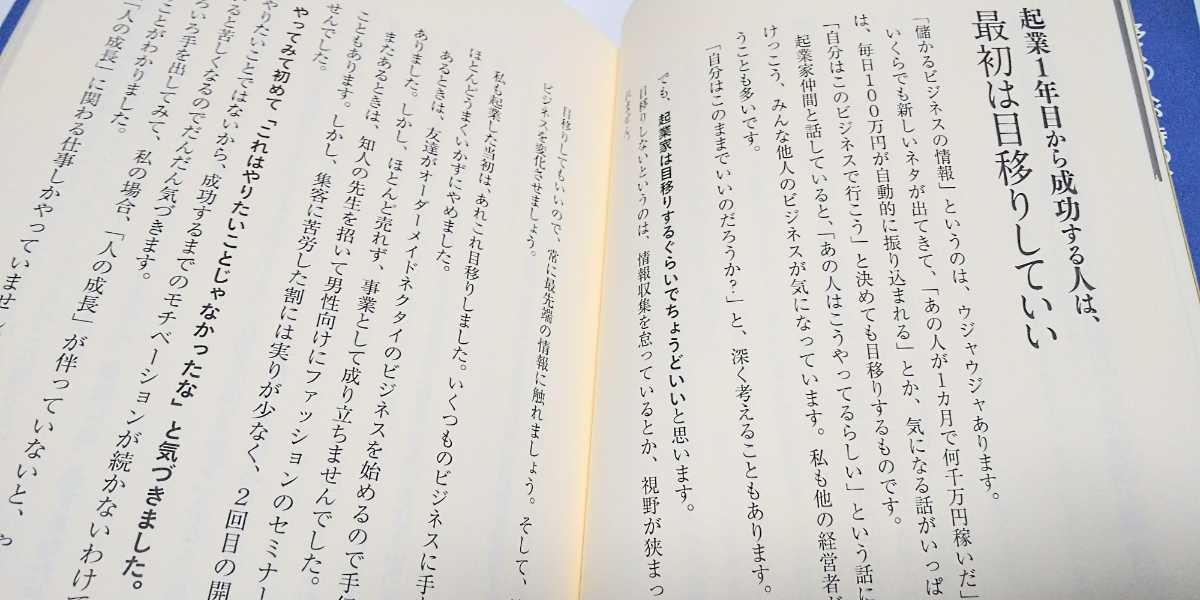 起業1年目から成功する人は、
最初は目移りしていい
「儲かるビジネスの情報」というのは、ウジャウジャあります。
いくらでも新しいネタが出てきて、「あの人が1カ月で何千万円稼いだ」
は、毎日100万円が自動的に振り込まれる」とか、気になる話がいっぱ
「自分はこのビジネスで行こう」と決めても目移りするものです。
起業家仲間と話していると、「あの人はこうやってるらしい」という話に
けっこう、みんな他人のビジネスが気になっています。私も他の経営者が
うことも多いです。
「自分はこのままでいいのだろうか?」と、深く考えることもあります。
でも、起業家は目移りするぐらいでちょうどいいと思います。
目移りしないというのは、情報収集を怠っているとか、視野が狭まっ
目移りしてもいいので、常に最先端の情報に触れましょう。そして、
ビジネスを変化させましょう。
私も起業した当初は、あれこれ目移りしました。いくつものビジネスに手
ほとんどうまくいかずにやめました。
あるときは、友達がオーダーメイドネクタイのビジネスを始めるので手伝
ありました。しかし、ほとんど売れず、事業として成り立ちませんでした。
またあるときは、知人の先生を招いて男性向けにファッションのセミナー
こともあります。しかし、集客に苦労した割には実りが少なく、2回目の開
せんでした。
やってみて初めて「これはやりたいことじゃなかったな」と気づきました。
やりたいことではないから、成功するまでのモチベーションが続かないわけ
ると苦しくなるのでだんだん気づきます。
ろいろ手を出してみて、私の場合、「人の成長」が伴っていないと、や
ことがわかりました。
「人の成長」に関わる仕事しかやっていません